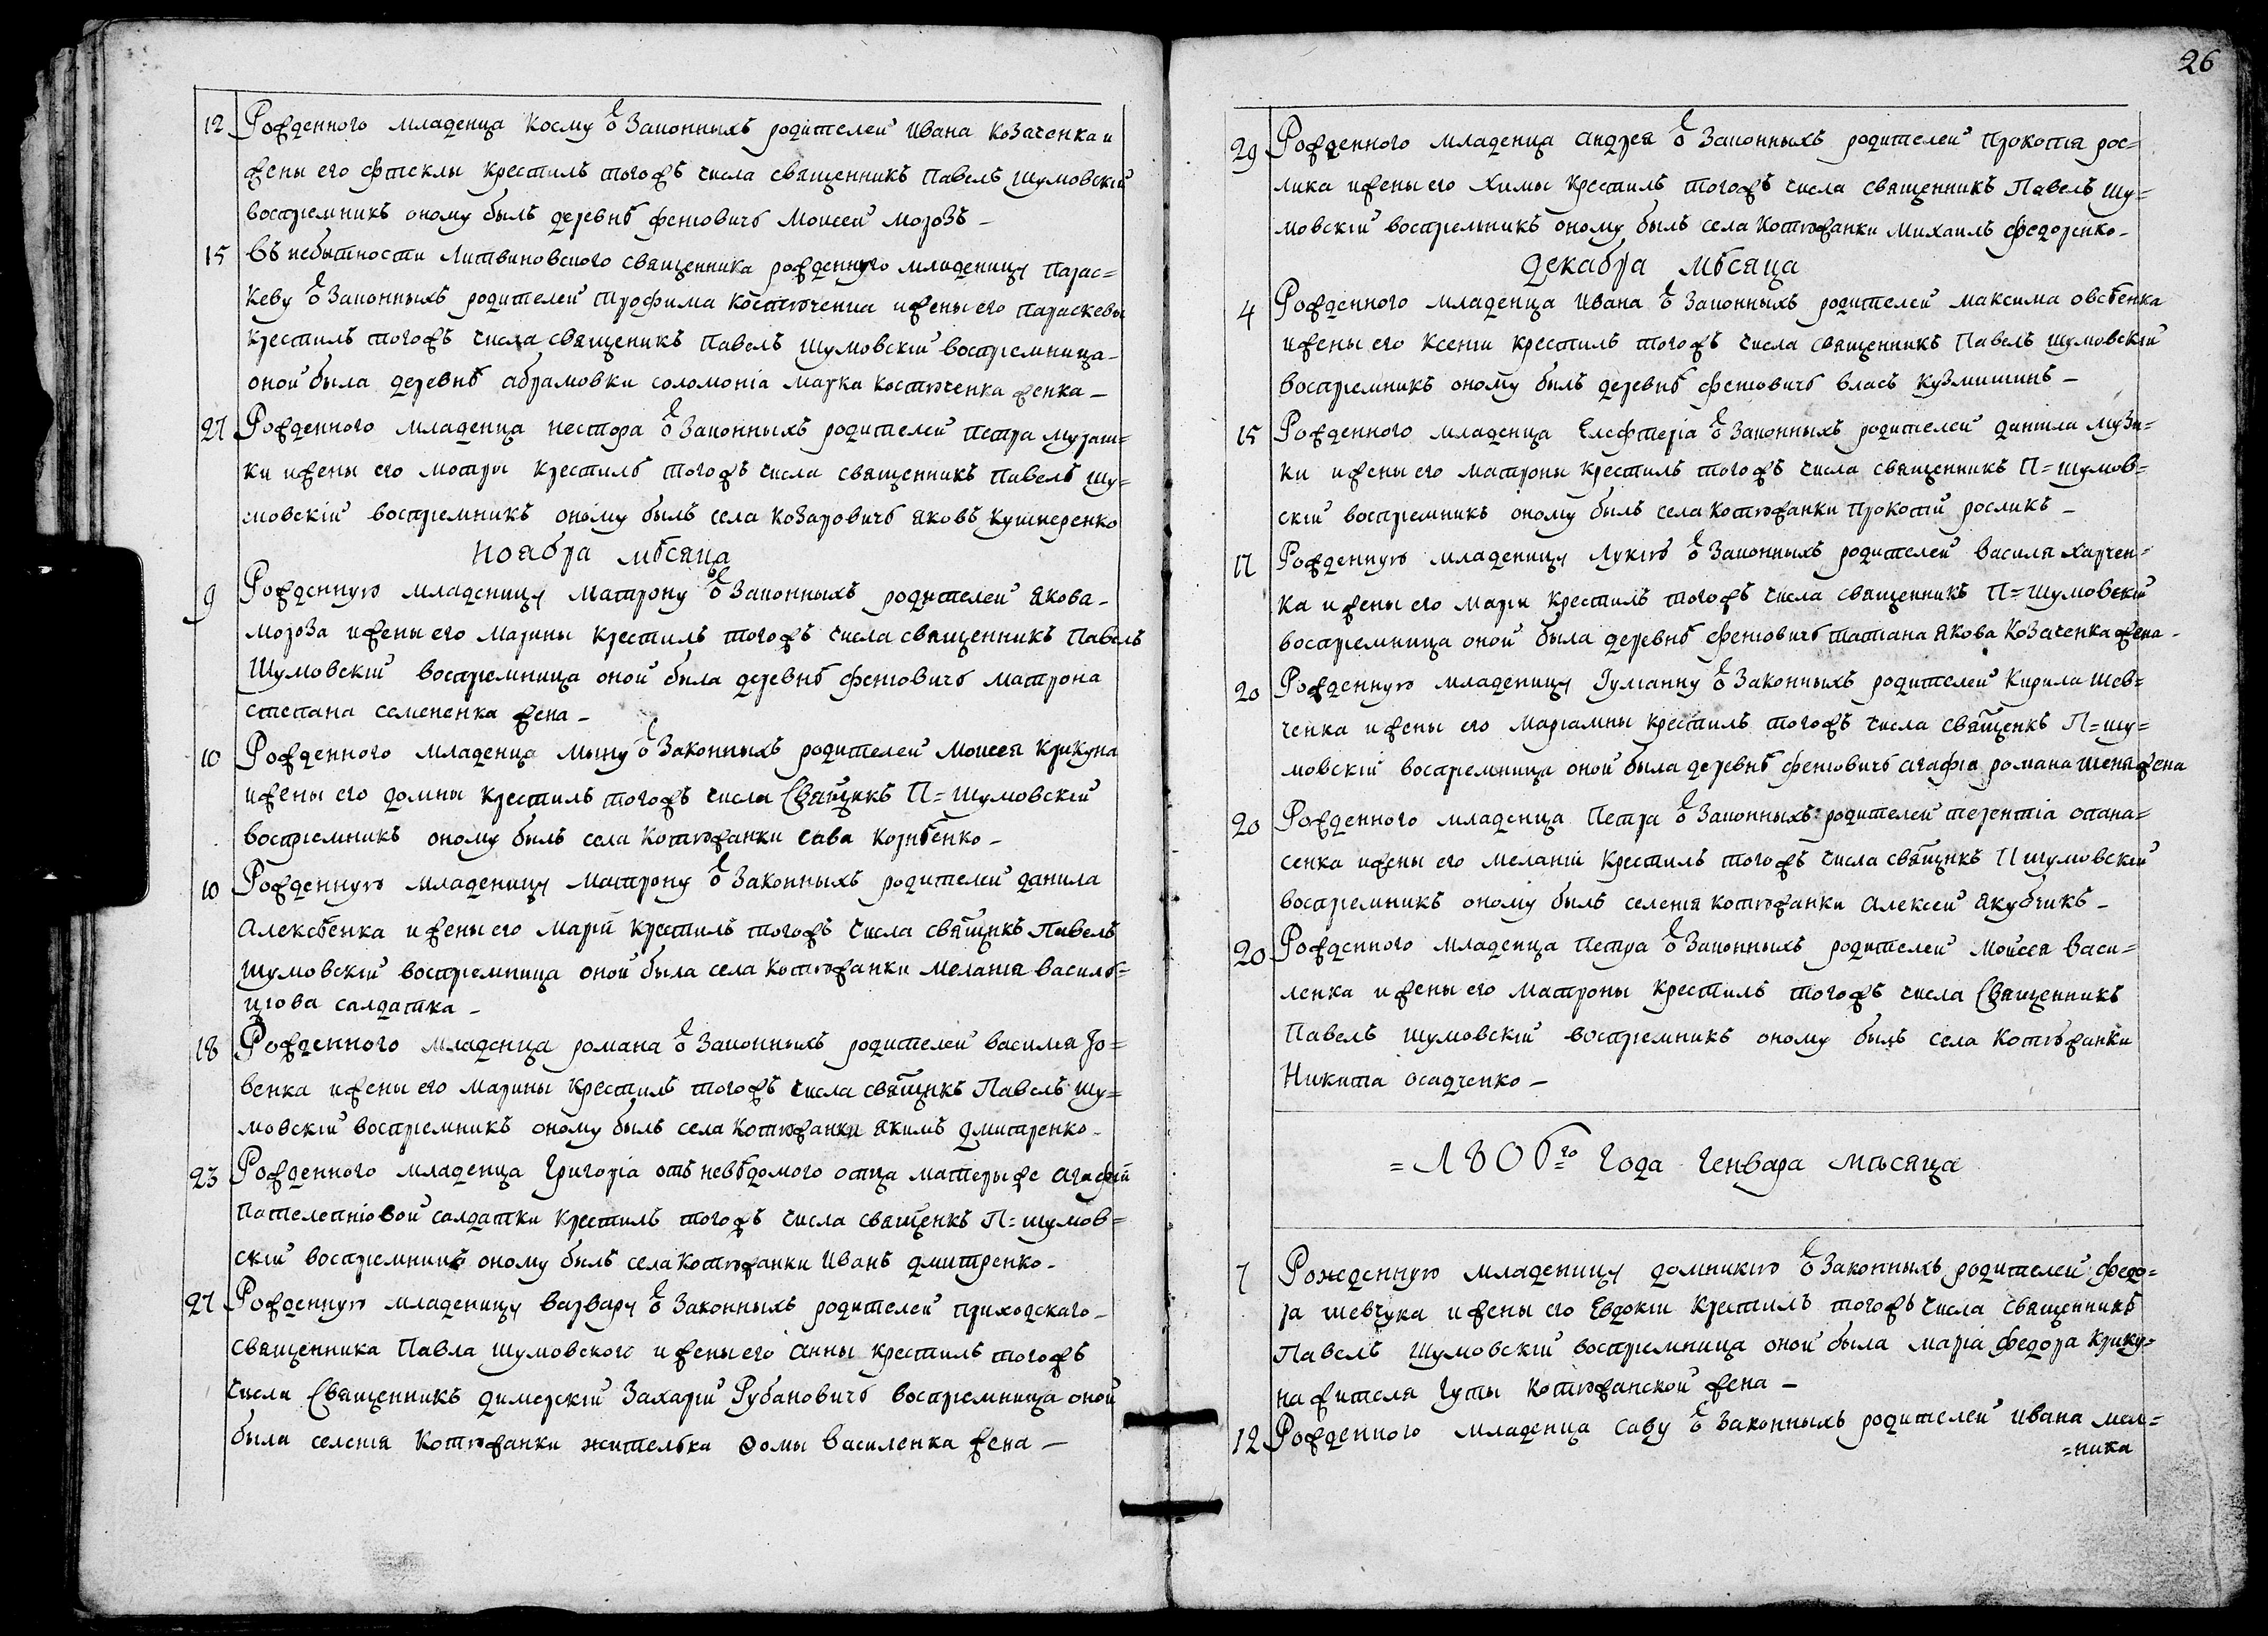 12 Рожденного младенца Косму ѿ Законныхъ родителей Ивана Козаченка и
жены его Фтеклы крестилъ тогожъ числа священникъ Павелъ Шумовскій
воспріемникъ оному былъ деревнѣ Феневичѣ Моисей Морозъ –
15 Въ небытности Литвиновского священника рожденную младеницу Парас=
Кеву ѿ Законныхъ родителей Трофима Костюченка и жены его Параскевы
крестилъ тогожъ числа священикъ Павелъ Шумовскій воспріемница
оной была деревнѣ Абрамовки Соломонія Марка Костюченка женка –
27 Рожденного младенца Нестора ѿ Законныхъ родителей Петра Мураш=
ки и жены его Мотры крестилъ тогожъ числа священникъ Павелъ Шу=
мовскій воспріемникъ оному былъ села Козаровичѣ Яковъ Кушнеренко
Ноября мѣсяца
9 Рожденную младеницу Матрону ѿ Законныхъ родителей Якова
Мороза и жены его Марины крестилъ тогожъ числа священникъ Павелъ
Шумовскій воспріемница оной была деревнѣ Феневичѣ Матрона
Степана Семененка жена –
10 Рожденного младенца Мину ѿ Законныхъ родителей Моисея Крикуна
и жены его Домны крестилъ тогожъ числа Свящнкъ П= Шумовскій
воспріемникъ оному былъ села Котюжанки Сава Корнѣенко –
10 Рожденную младеницу Матрону ѿ Законныхъ родителей Данила
Алексѣенка и жены его Маріи крестилъ тогожъ числа свящнкъ Павелъ
Шумовскій воспріемница оной была села Котюжанки Меланія Василь=
цова салдатка –
18 Рожденного младенца Романа ѿ Законныхъ родителей Василія Зо=
венка и жены его Марины крестилъ тогожъ числа свящнкъ Павелъ Шу=
мовскій воспріемникъ оному былъ села Котюжанки Якимъ Дмитренко –
23 Рожденного младенца Григорія отъ невѣдомого отца матеры же Агафіи
Пателепніовой салдатки крестилъ тогожъ числа священкъ П= Шумов=
скій воспріемникъ оному былъ села Котюжанки Иванъ Дмитренко –
27 Рожденную младеницу Варвару ѿ Законныхъ родителей приходскаго
священника Павла Шумовского и жены его Анны крестилъ тогожъ
числа Священникъ Димерскій Захарій Рубановичъ воспріемница оной
была селенія Котюжанки жителька Ѳомы Василенка жена –
26
29 Рожденного младенца Андрея ѿ Законныхъ родителей Прокопія Рос=
лика и жены его Химы крестилъ тогожъ числа священникъ Павелъ Шу=
мовскій воспріемникъ оному былъ села Котюжанки Михаилъ Федоренко –
Декабра мѣсяца
4 Рожденного младенца Ивана ѿ Законныхъ родителей Максима Овсѣенка
и жены его Ксеніи крестилъ тогожъ числа священникъ Павелъ Шумовскій
воспріемникъ оному былъ деревнѣ Феневичѣ Власъ Кузмишинъ –
15 Рожденного младенца Елефтерія ѿ Законныхъ родителей Данила Музи=
ки и жены его Матроны крестилъ тогожъ числа священникъ П= Шумов=
скій воспріемникъ оному былъ села Котюжанки Прокопій Росликъ –
17 Рожденную младеницу Лукію ѿ Законныхъ родителей Василя Харчен=
ка и жены его Мари крестилъ тогожъ числа священникъ П= Шумовскій
воспріемница оной была деревнѣ Феневичѣ Татіана Якова Козаченка жена –
20 Рожденную младеницу Іуліанну ѿ Законныхъ родителей Кирила Шев=
ченка и жены его Маріамны крестилъ тогожъ числа священкъ П= Шу=
мовскій воспріемница оной была деревнѣ Феневичѣ Агафія Романа жена
20 Рожденного младенца Петра ѿ Законныхъ родителей Терентіа Опана=
сенка и жены его Меланіи крестилъ тогожъ числа свящнкъ П Шумовскій
воспріемникъ оному былъ селенія Котюжанки Алексей Якубчикъ –
20 Рожденного младенца Петра ѿ Законныхъ родителей Моисея Васи=
ленка и жены его Матроны крестилъ тогожъ числа Священникъ
Павелъ Шумовскій воспріемникъ оному былъ села Котюжанки
Никита Осадченко –
= 1806го Года Генваря мѣсяца
7 Рожденную младеницу Домникію ѿ Законныхъ родителей Федо=
ра Шевчука и жены его Евдокіи крестилъ тогожъ числа священникъ
Павелъ Шумовскій воспріемница оной была Марія Федора Крику=
на жителя Гуты Котюжанской жена –
12 Рожденного младенца Саву ѿ Законныхъ родителей Ивана Мел=
=ника